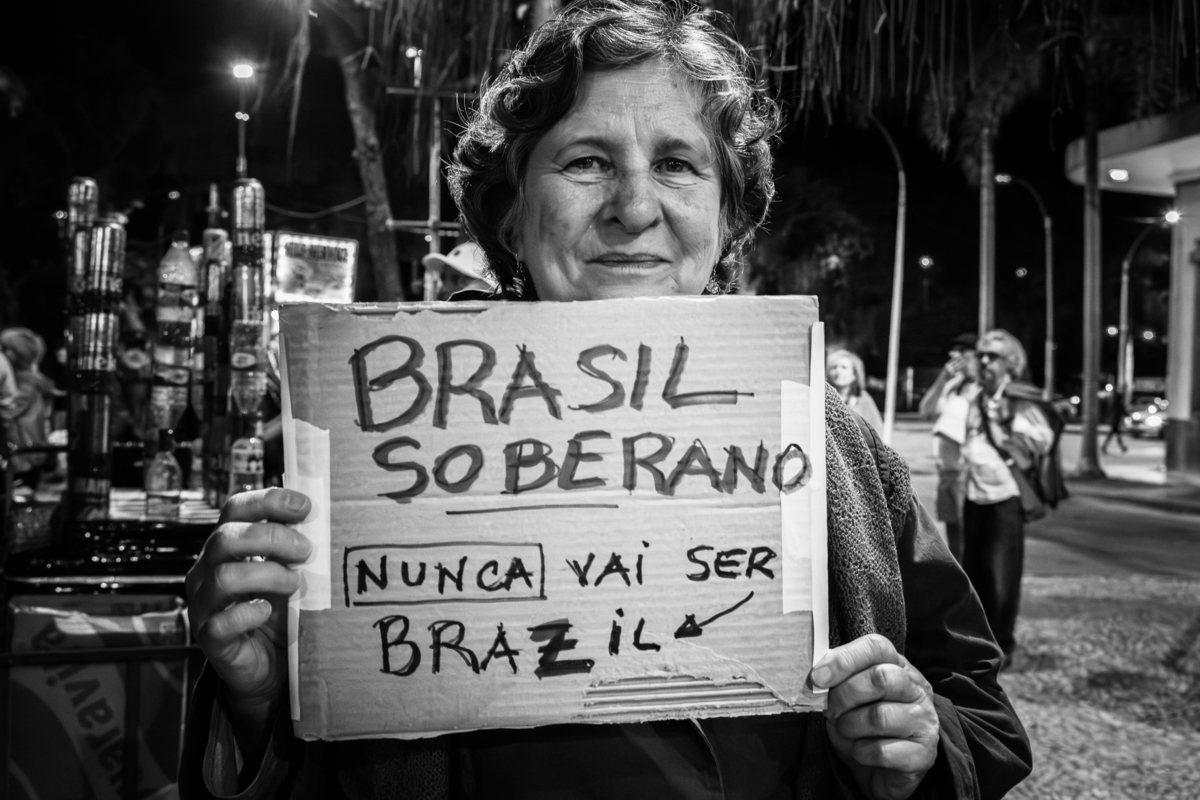 BRASIL
SOBERANO
NUNCA VAI SER
BRAZIL